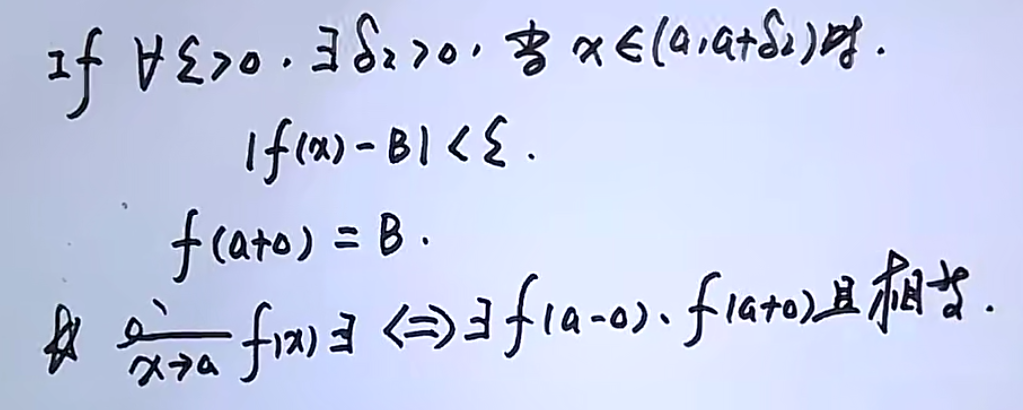 If ∀ε>0,∃δ₂>0,当 x∈(a,a+δ₂)时.
|f(x)-B|<ε.
f(a+0)=B.
x→a f(x)∃ ⇔ ∃f(a-0)、f(a+0)且相等.